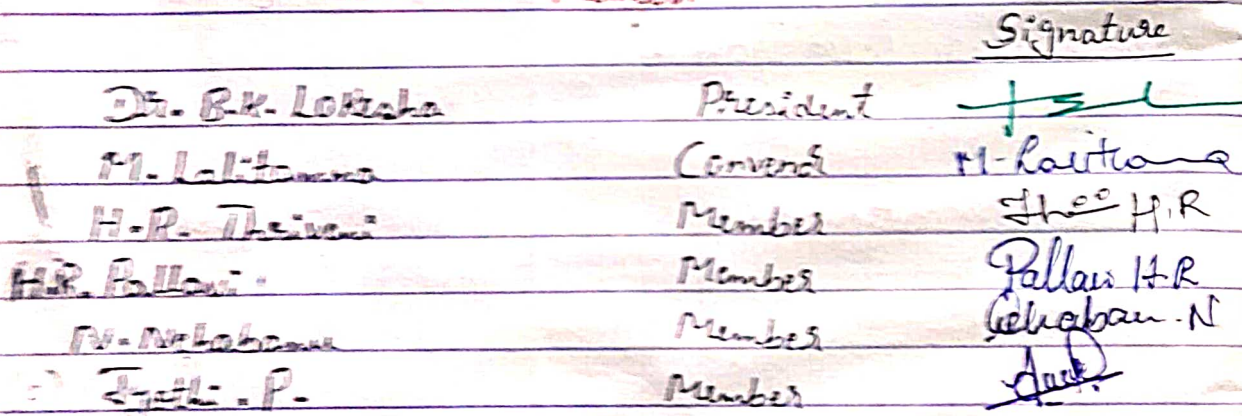 Signature
Dr. B.K. Lokesha President
M. Lalitamma Convenor M. Lalithamma
H.R. Thriveni Member H.R
H.R. Pallavi Member Pallavi H.R
N. Member N
Jyothi . P. Member